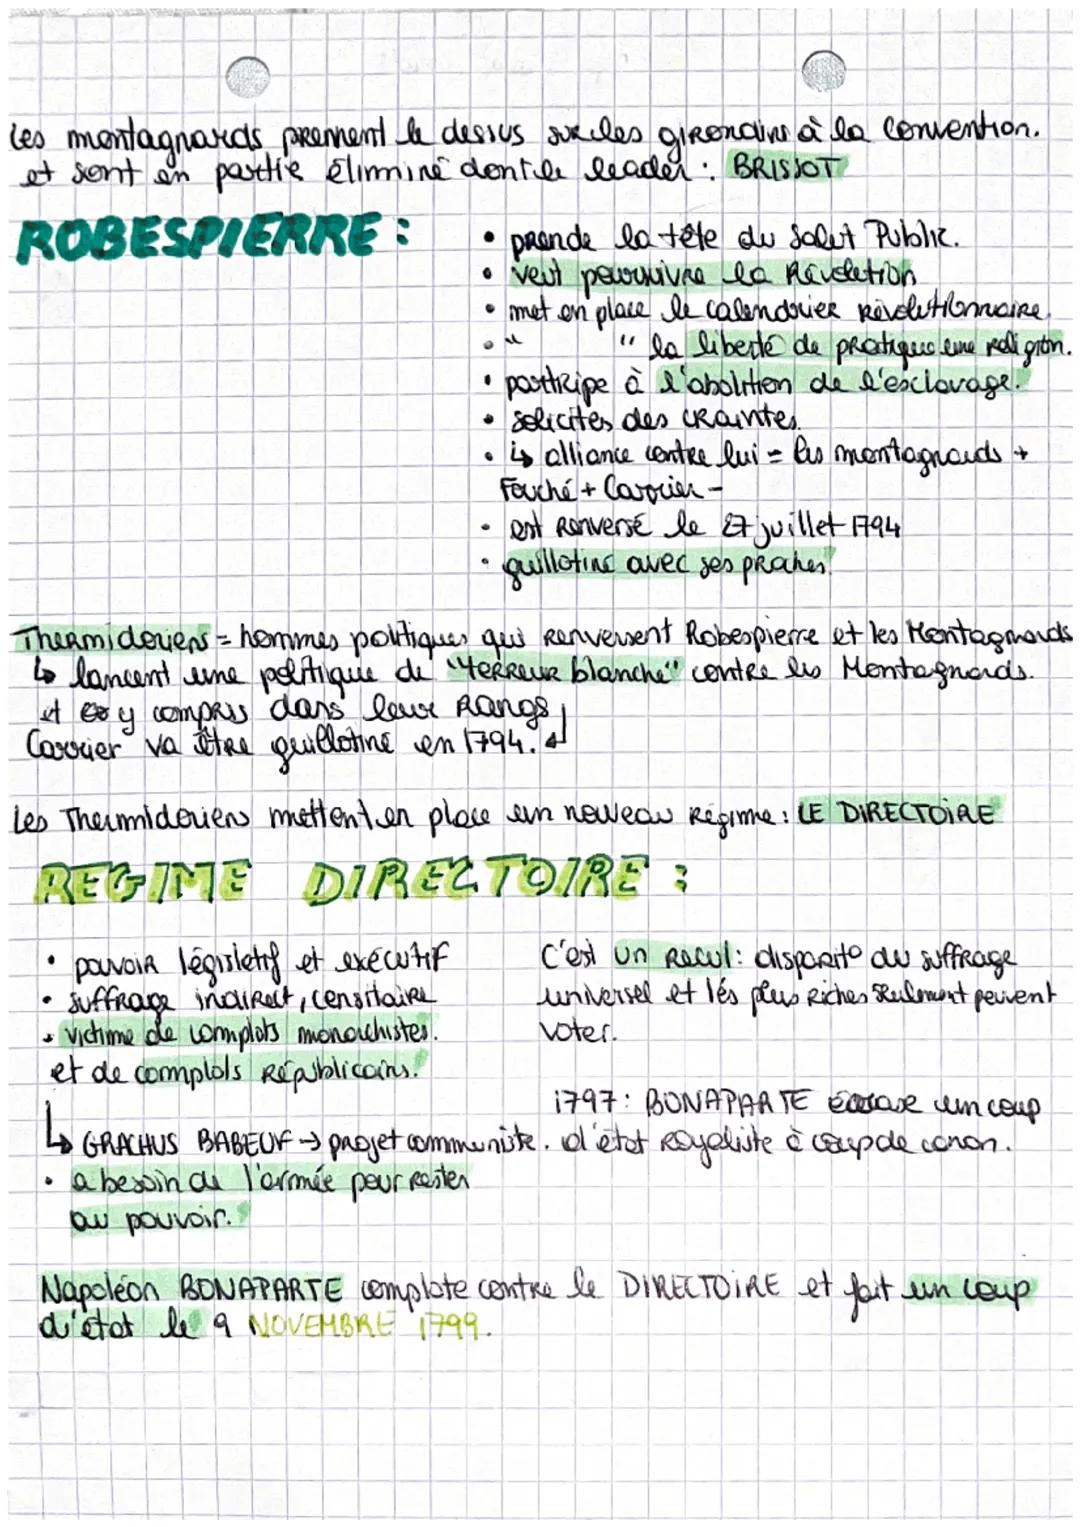 Les montagnards prennent le dessus sur les girondins à la convention.
et sont en partie éliminé dont le leader : BRISSOT
ROBESPIERRE :
• prende la tête du Salut Public.
• veut poursuivre la Révolution
• met en place le calendrier révolutionnaire.
• " " la liberté de pratique une religion.
• participe à l'abolition de l'esclavage.
• solicites des craintes.
• ↳ alliance contre lui = les montagnards +
Fouché + Carrier -
• est renversé le 27 juillet 1794
• guillotiné avec ses proches.
Thermidoriens = hommes politiques qui renversent Robespierre et les Montagnards
↳ lancent une politique de "terreur blanche" contre les Montagnards.
et y compris dans leur rangs
Carrier va être guillotiné en 1794.
Les Thermidoriens mettent en place un nouveau régime : LE DIRECTOIRE
REGIME DIRECTOIRE :
• pouvoir législatif et exécutif
• suffrage indirect, censitaire
• victime de complots monarchistes.
et de complots Républicains.
↳ GRACHUS BABEUF → projet communiste.
• a besoin de l'armée pour rester
au pouvoir.
C'est un recul : disparito du suffrage
universel et lés plus riches seulement peuvent
voter.
1797 : BONAPARTE écrase um coup
d'état royaliste à coup de canon.
Napoléon BONAPARTE complote contre le DIRECTOIRE et fait un coup
d'état le 9 NOVEMBRE 1799.